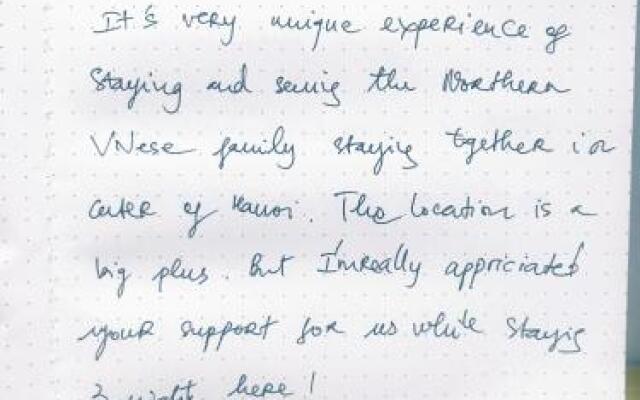 It's very unique experience of
Staying and seeing the Northern
VNese family staying together in
center of Hanoi. The location is a
big plus. But I'm Really appriciated
your support for us while Staying
night here!